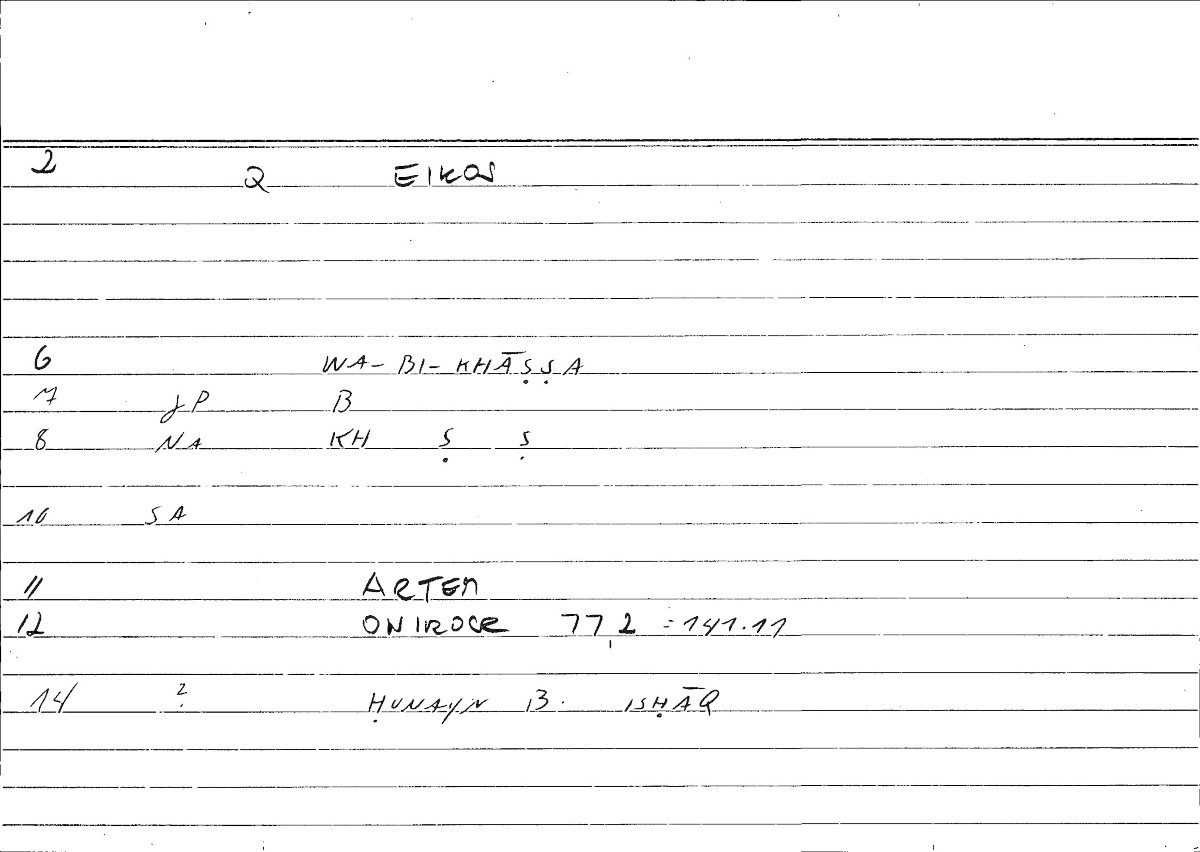 2 Q EIKOS
6 WA-BI-KHĀṢṢA
7 JP B
8 NA KH Ṣ Ṣ
10 SA
11 ARTEM
12 ONIROCR 77,2 = 141.11
14 ? ḤUNAYN B. ISḤĀQ